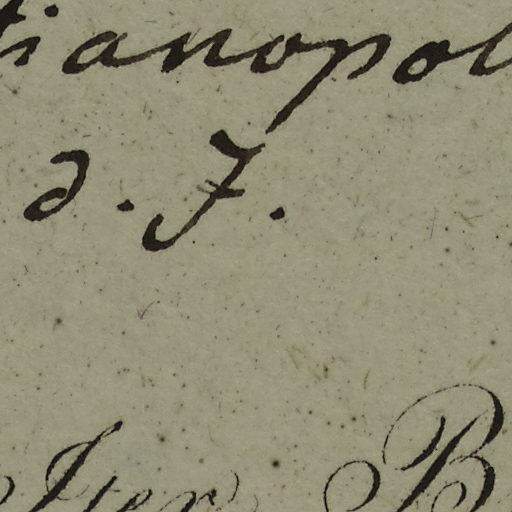 tianopol
d. 7.
Iter B